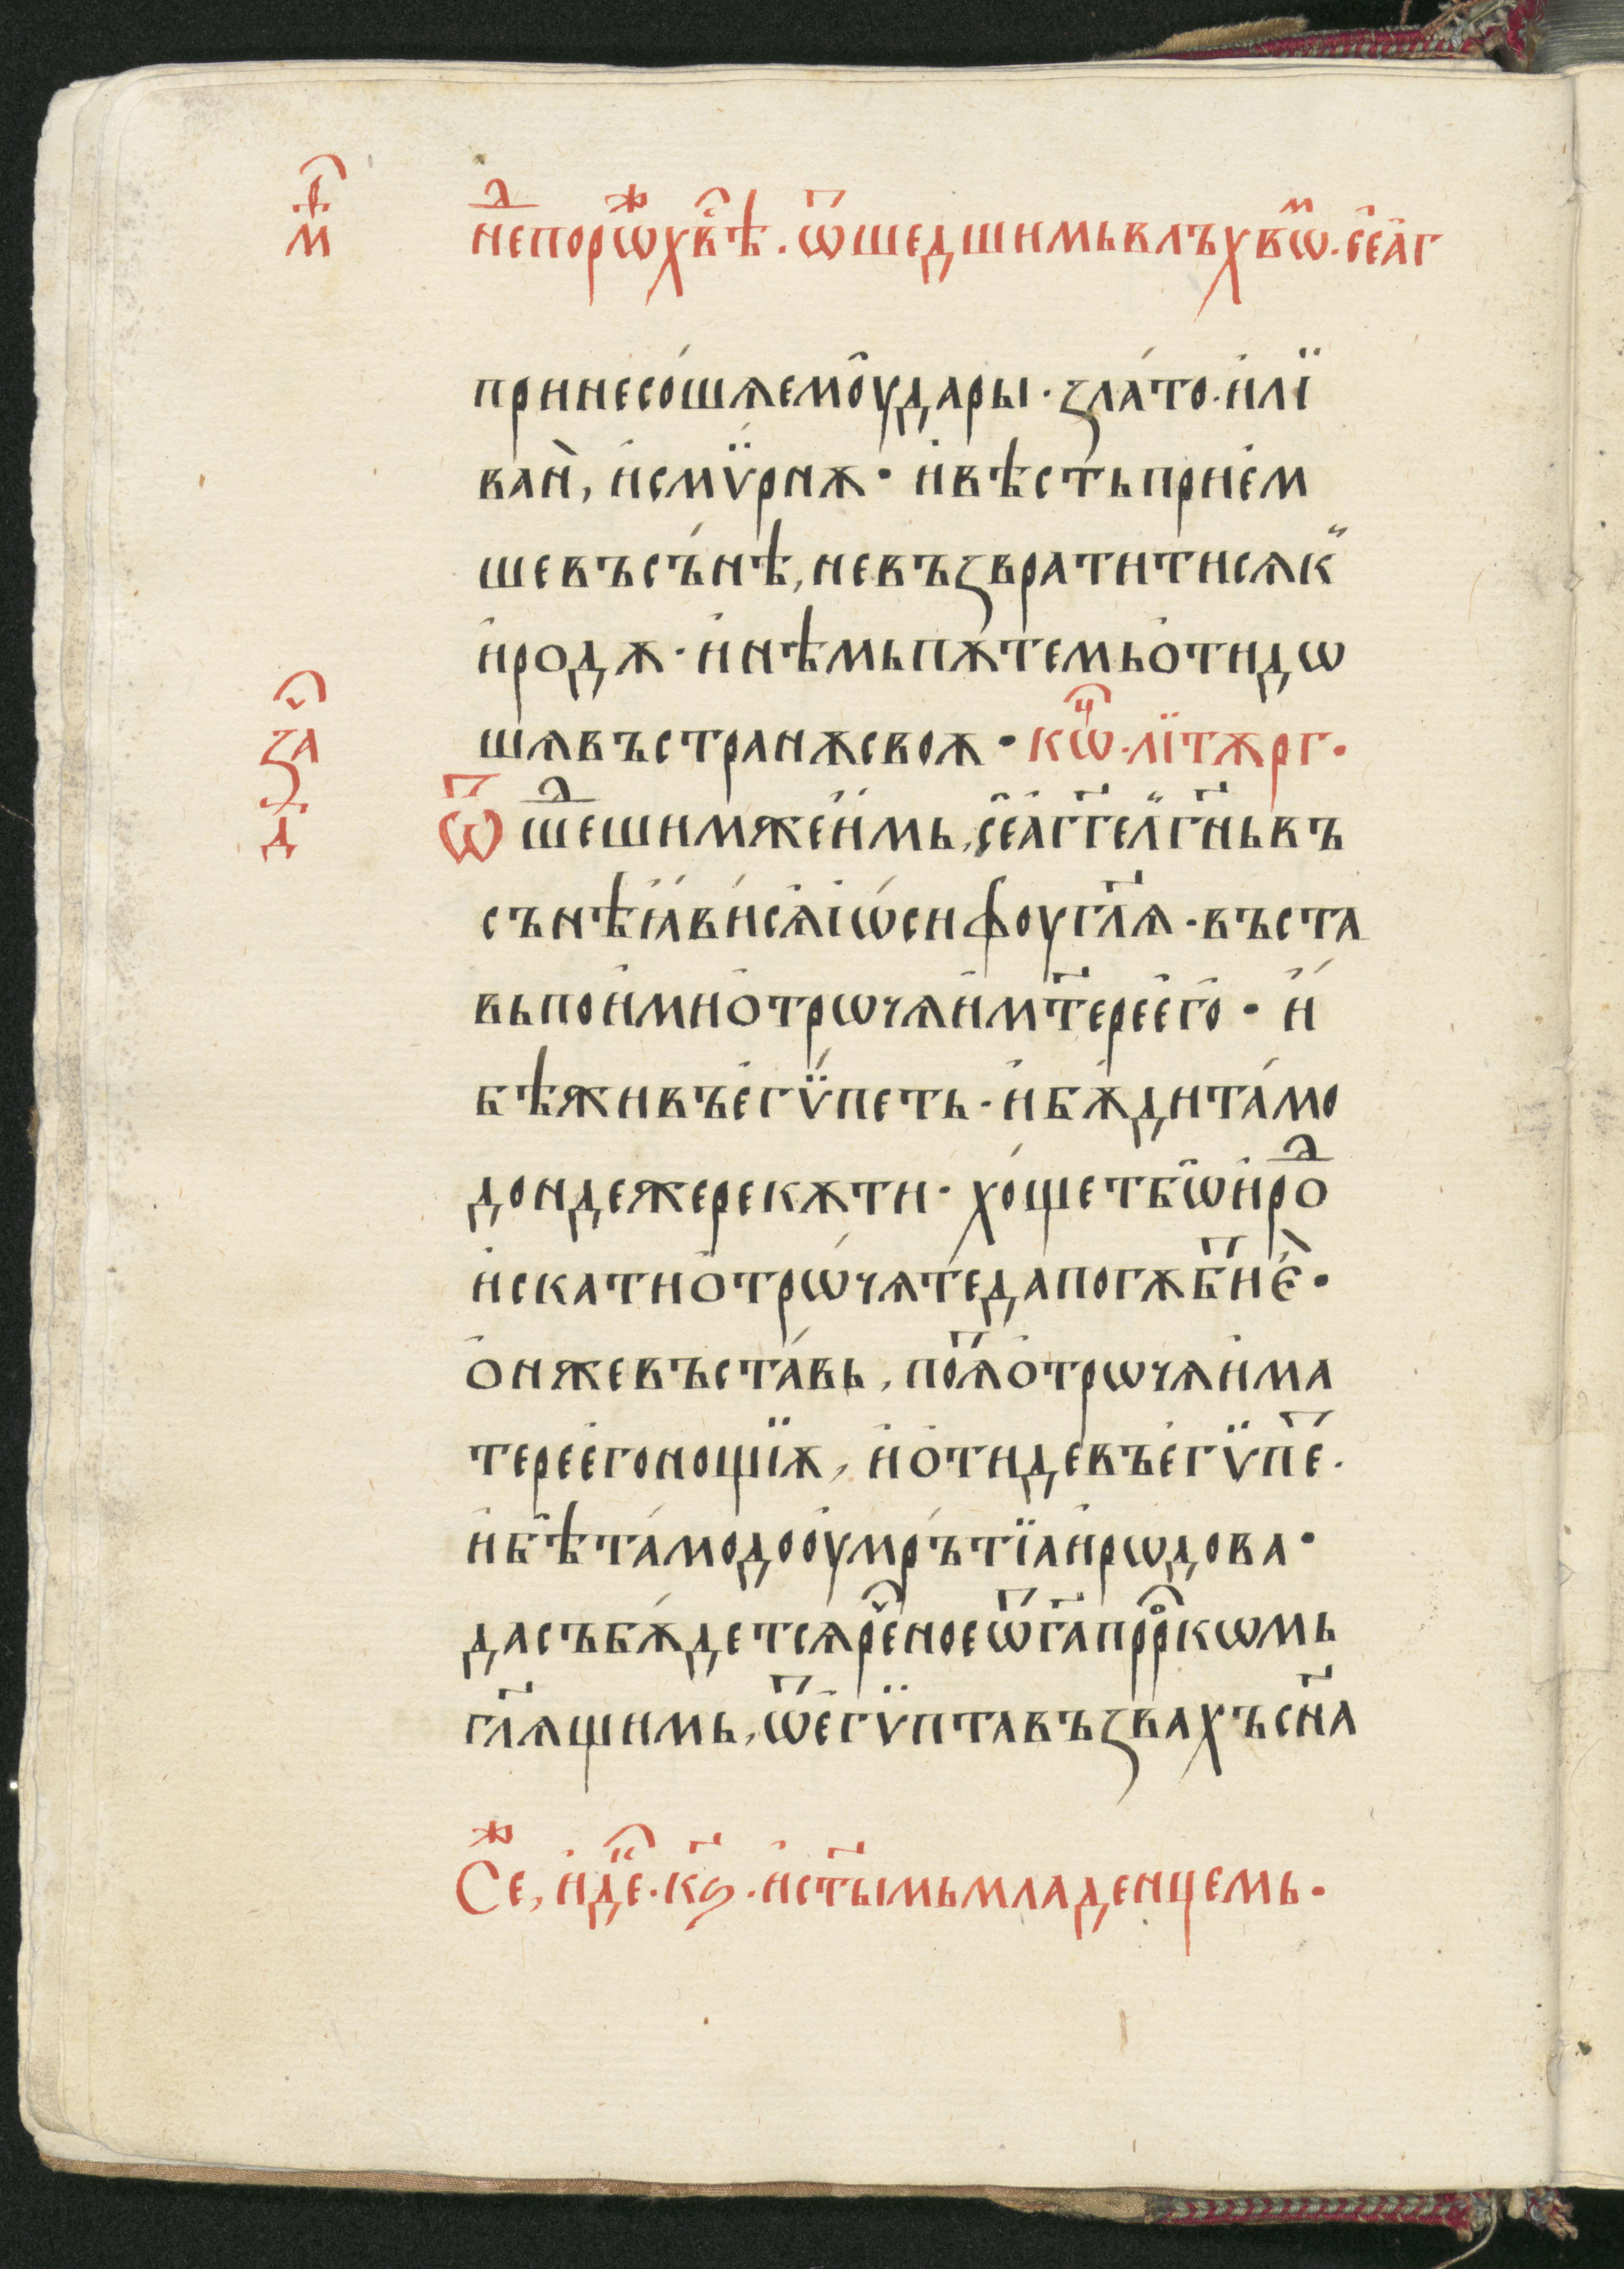 м҃
нⷣепорѡⷤхв҇ѣ . ѿшедшимьвлъхвѡⷨ . се̑а̑г
принесо́шѧемо̑удары · zла́то · и҆лї
ван̀, и҆смѵ̈́рнѫ · и҆вѣсть прїе҆м
шевъсъ́нѣ, невъzвратитисѧк̏
и҆родѫ · и҆нѣмьпѫтемьо҆тидѡ
шѧвъстранѫсвоѫ · кѡⷩ҇ . лїтѫрг .
zа҇
д
ѿшеⷣшимжеи҆́мь, се̑а̑гг҃ел̏г҃ньвъ
сънѣꙗ҆́ви́сѧі҆ѡ́сифоугл҃ѧ · въста
вьпои҆мио̑трѡчѧи҆мт҃ерее҆го · и҆́
бѣживъе҆гѵ̈́петь · и҆бѫ́дита́мо
дондежерекѫти · хо́щетбѡ̑и҆роⷣ
и҆скатио̑трѡ́чѧт́едапогѫби҃є̀ ·
о҆нжевъста́вь, поѧ҃о҆трѡчѧи҆ма
терее҆гонощїѫ, и҆о҆тидевъе҆гѵ̈пе҃ .
и҆бѣ̑та́модоо҆умр́ътїаи҆рѡдова ·
дасъбѫ́детсѧре҇ноеѿг҃апррⷪ҇кѡмь
гл҃ѧщимь, ѿе̑гѵ̈птавъzвахъсн҃а
Сеⷤ, и҆дⷦ҇е . кѕ҃ . и҆ст҃ы́мьмладенцемь .